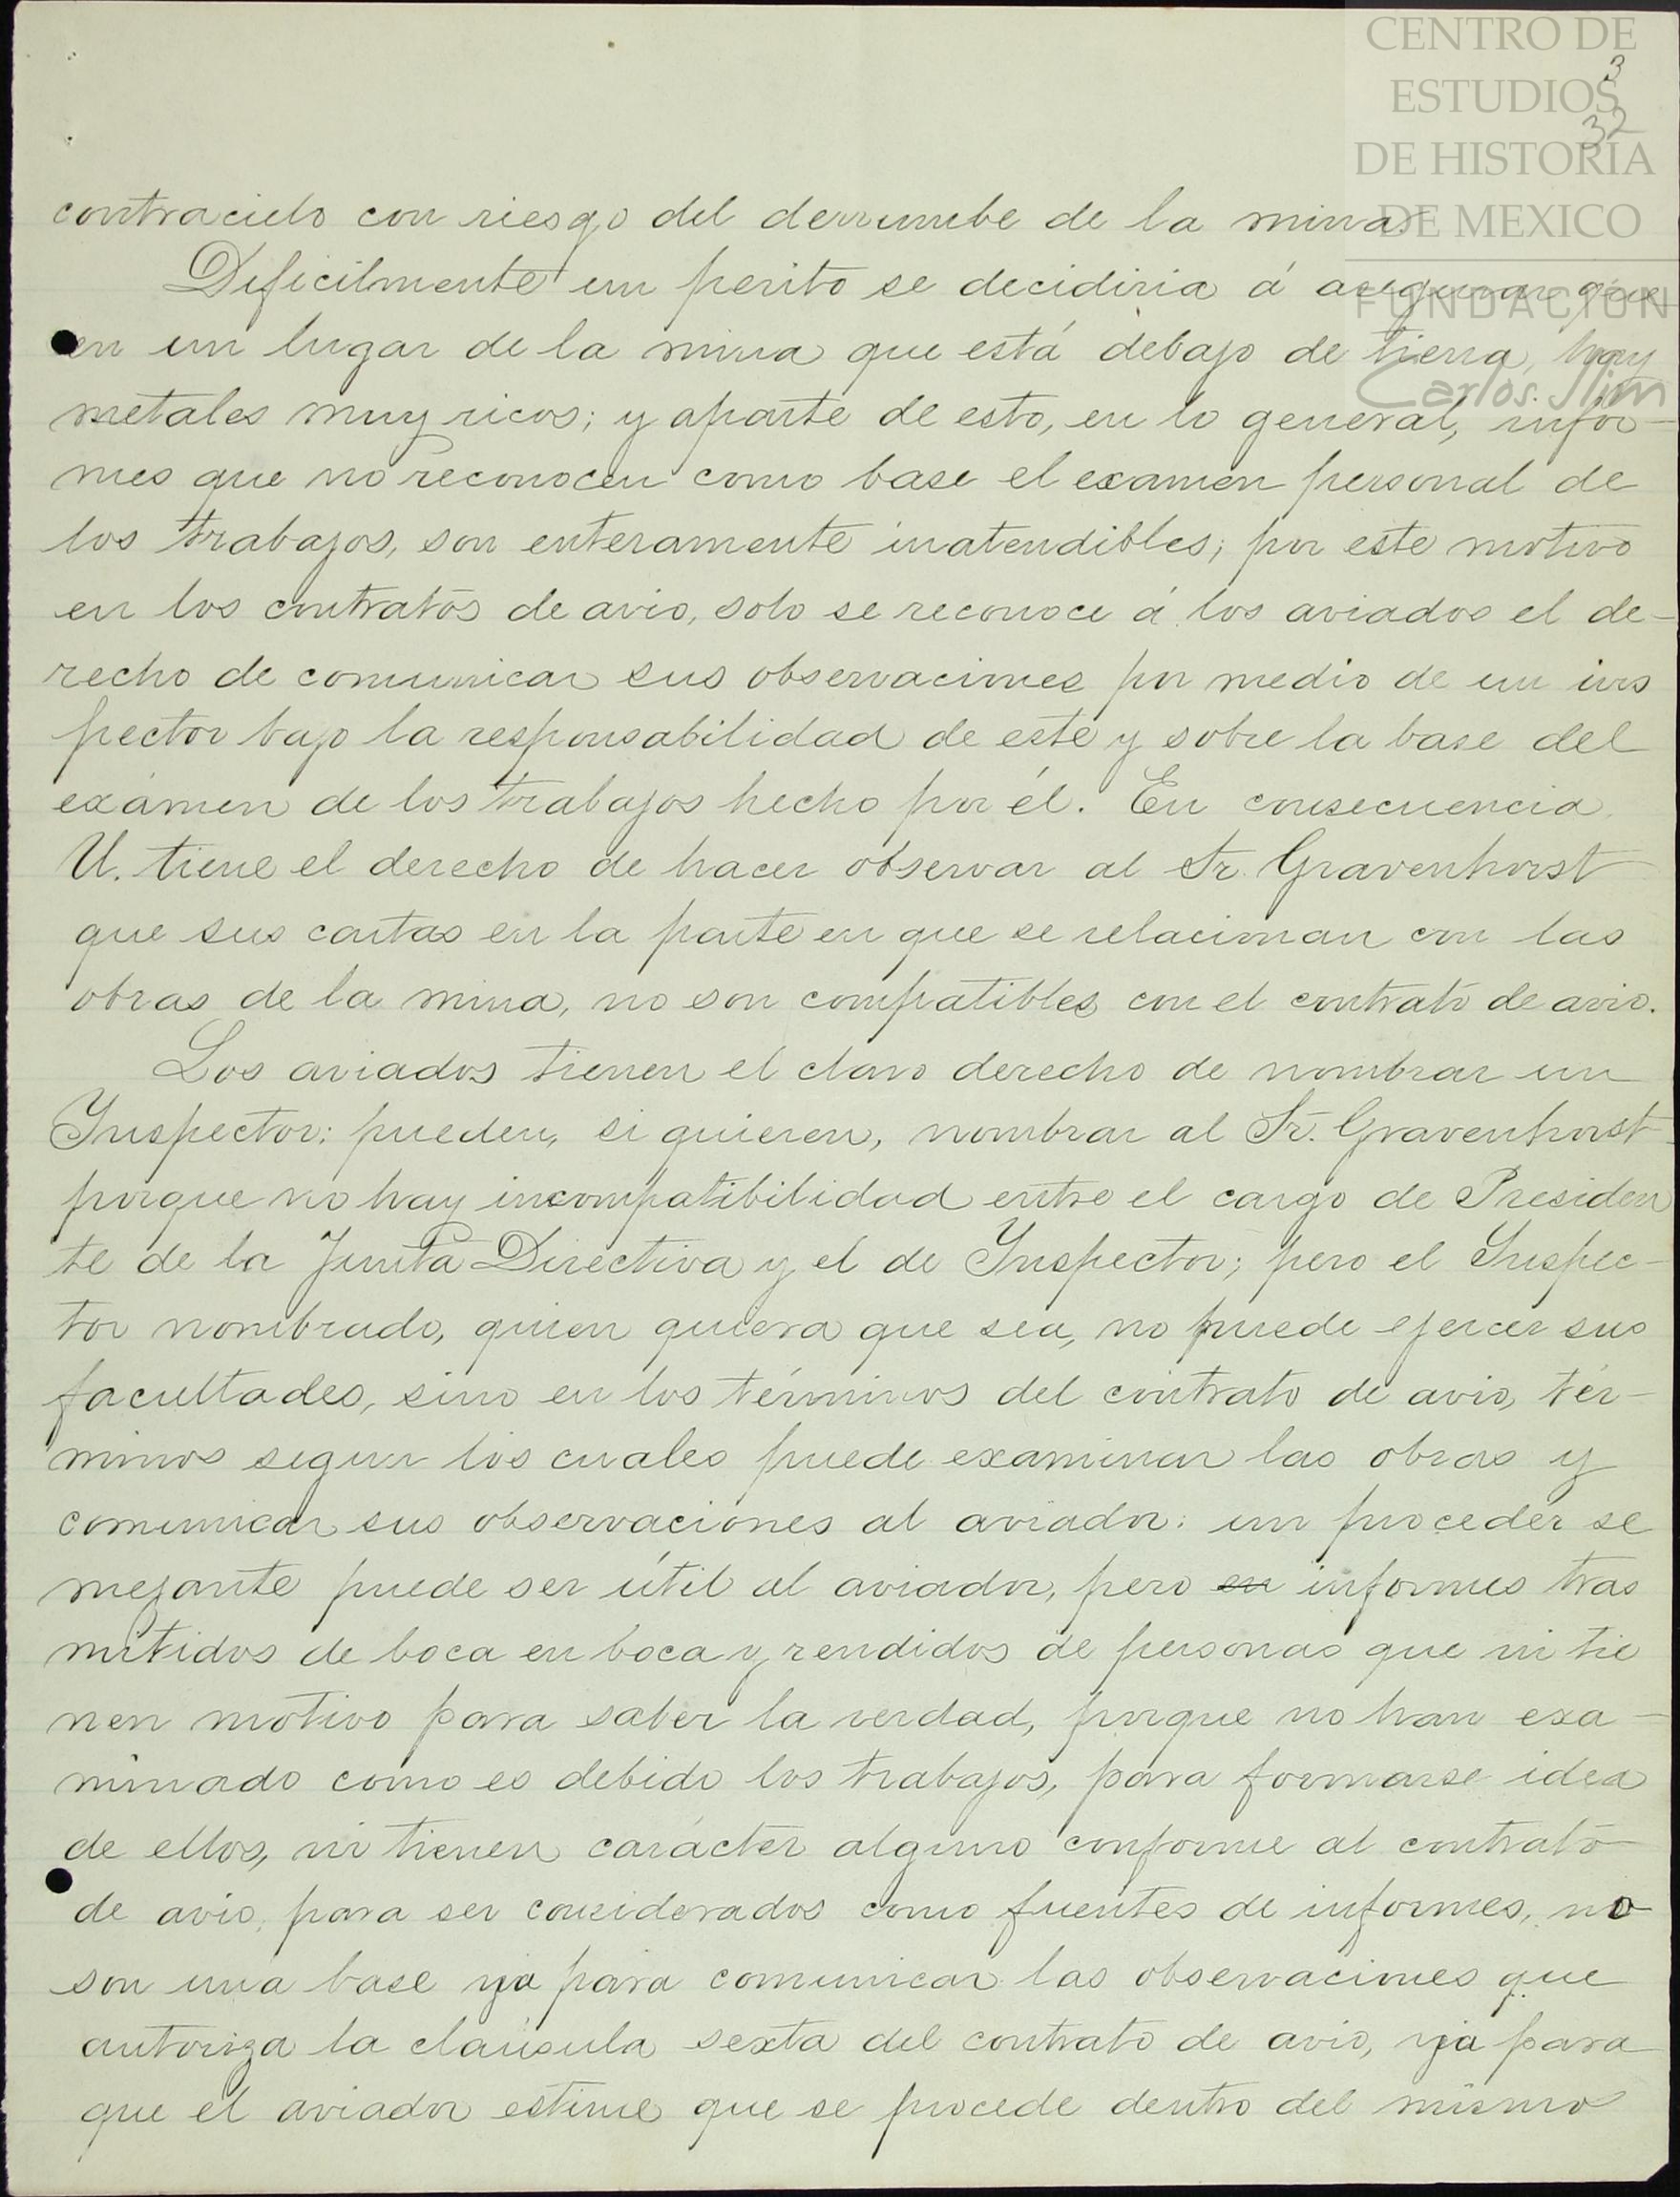 CENTRO DE
ESTUDIOS
DE HISTORIA
DE MEXICO
FUNDACIÓN
Carlos Slim
3
32
contracielo con riesgo del derrumbe de la mina.
Dificilmente un perito se decidiria á asegurar que
en un lugar de la mina que está debajo de tierra, hay
metales muy ricos; y aparte de esto, en lo general, infor-
mes que no reconocen como base el examen personal de
los trabajos, son enteramente inatendibles; por este motivo
en los contratos de avio, solo se reconoce á los aviados el de-
recho de comunicar sus observaciones por medio de un ins
pector bajo la responsabilidad de este y sobre la base del
exámen de los trabajos hecho por él. En consecuencia
U. tiene el derecho de hacer observar al Sr. Gravenhorst
que sus cartas en la parte en que se relacionan con las
obras de la mina, no son compatibles con el contrato de avio.
Los aviados tienen el claro derecho de nombrar un
Inspector: pueden, si quieren, nombrar al Sr. Gravenhorst
porque no hay incompatibilidad entre el cargo de Presiden
te de la Junta Directiva y el de Inspector; pero el Inspec-
tor nombrado, quien quiera que sea, no puede ejercer sus
facultades, sino en los términos del contrato de avio, tér-
minos segun los cuales puede examinar las obras y
comunicar sus observaciones al aviador: un proceder se
mejante puede ser útil al aviador, pero en informes tras
mitidos de boca en boca y rendidos de personas que ni tie
nen motivo para saber la verdad, porque no han exa-
minado como es debido los trabajos, para formarse idea
de ellos, ni tienen carácter alguno conforme al contrato
de avio, para ser considerados como fuentes de informes, no
son una base ya para comunicar las observaciones que
autoriza la claúsula sexta del contrato de avio, ya para
que el aviador estime que se procede dentro del mismo